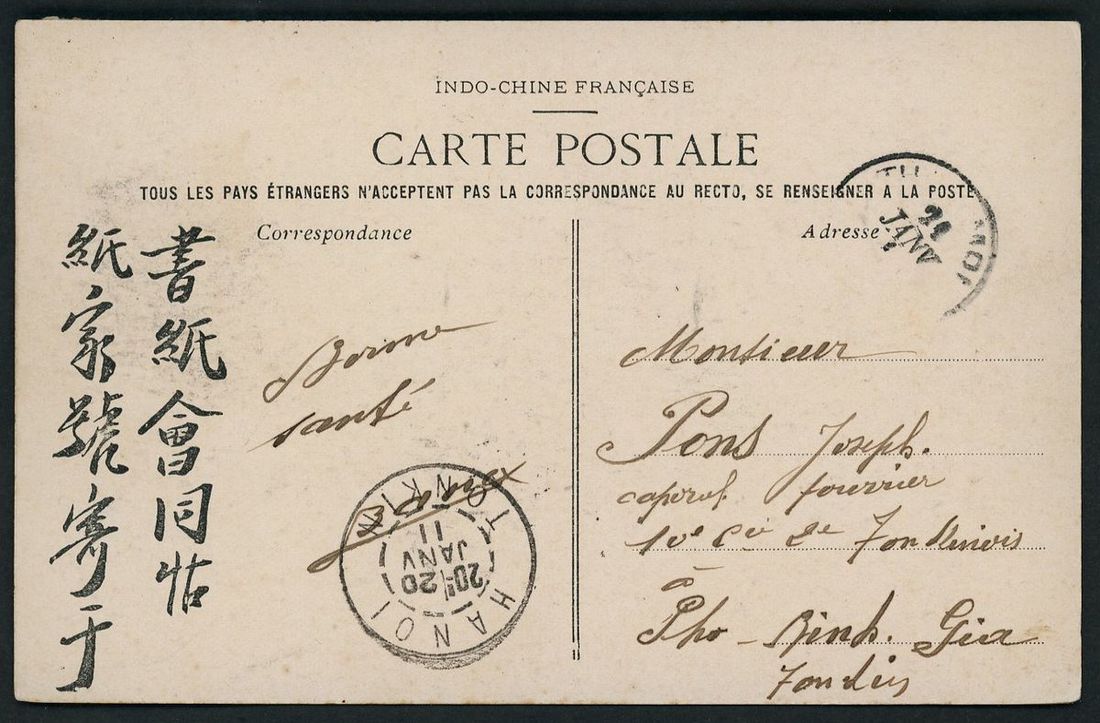 INDO-CHINE FRANÇAISE
CARTE POSTALE
TOUS LES PAYS ÉTRANGERS N'ACCEPTENT PAS LA CORRESPONDANCE AU RECTO, SE RENSEIGNER A LA POSTE
Correspondance
書紙會同帖
紙家號寄于
Bonne
santé
HANOI TONKIN
20 JANV 11
Adresse
JANV
Monsieur
Pons Joseph.
caporal fourrier
10e Cie 2e Tonkinois
à
Pho-Binh. Gia
Tonkin